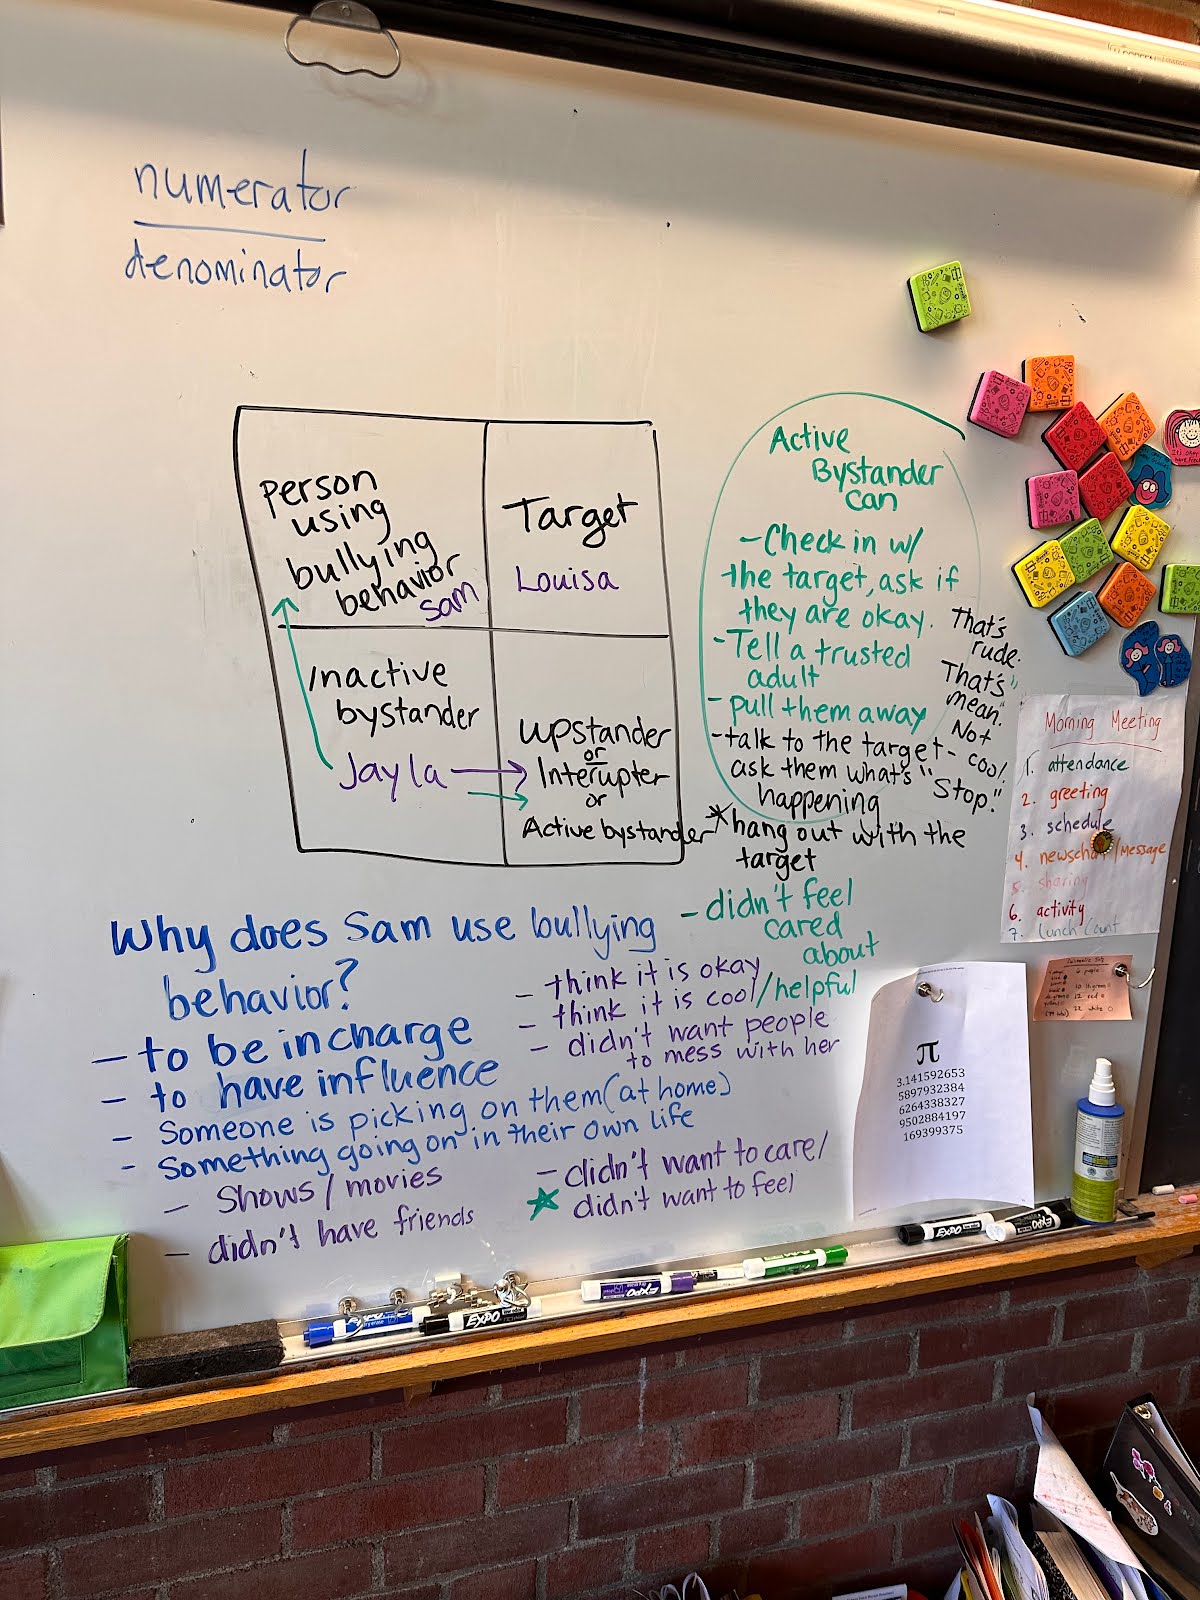 numerator
denominator
person
using
bullying
behavior
Sam
Target
Louisa
Inactive
bystander
Jayla
upstander
or
Interupter
or
Active bystander
Active
Bystander
can
- Check in w/
the target, ask if
they are okay.
- Tell a trusted
adult
- pull them away
- talk to the target -
ask them what's
happening
* hang out with the
target
That's
rude.
That's
mean."
Not
cool.
"Stop."
Why does Sam use bullying
behavior?
- to be in charge
- to have influence
- Someone is picking on them (at home)
- Something going on in their own life
- Shows / movies
- didn't have friends
- didn't feel
cared
about
- think it is okay
- think it is cool/helpful
- didn't want people
to mess with her
- didn't want to care/
didn't want to feel
Morning Meeting
1. attendance
2. greeting
3. schedule
4. /Message
5. sharing
6. activity
7. Lunch Count
π
3.141592653
5897932384
6264338327
9502884197
169399375
EXPO
EXPO
EXPO
EXPO